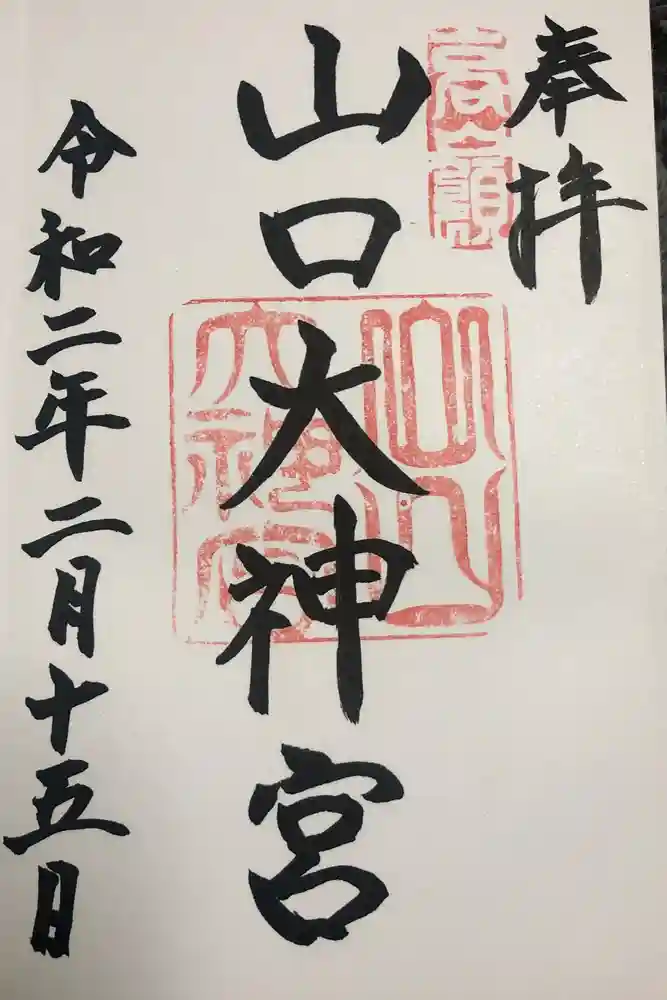 奉拝
高嶺
山口大神宮
山口大神宮
令和二年二月十五日